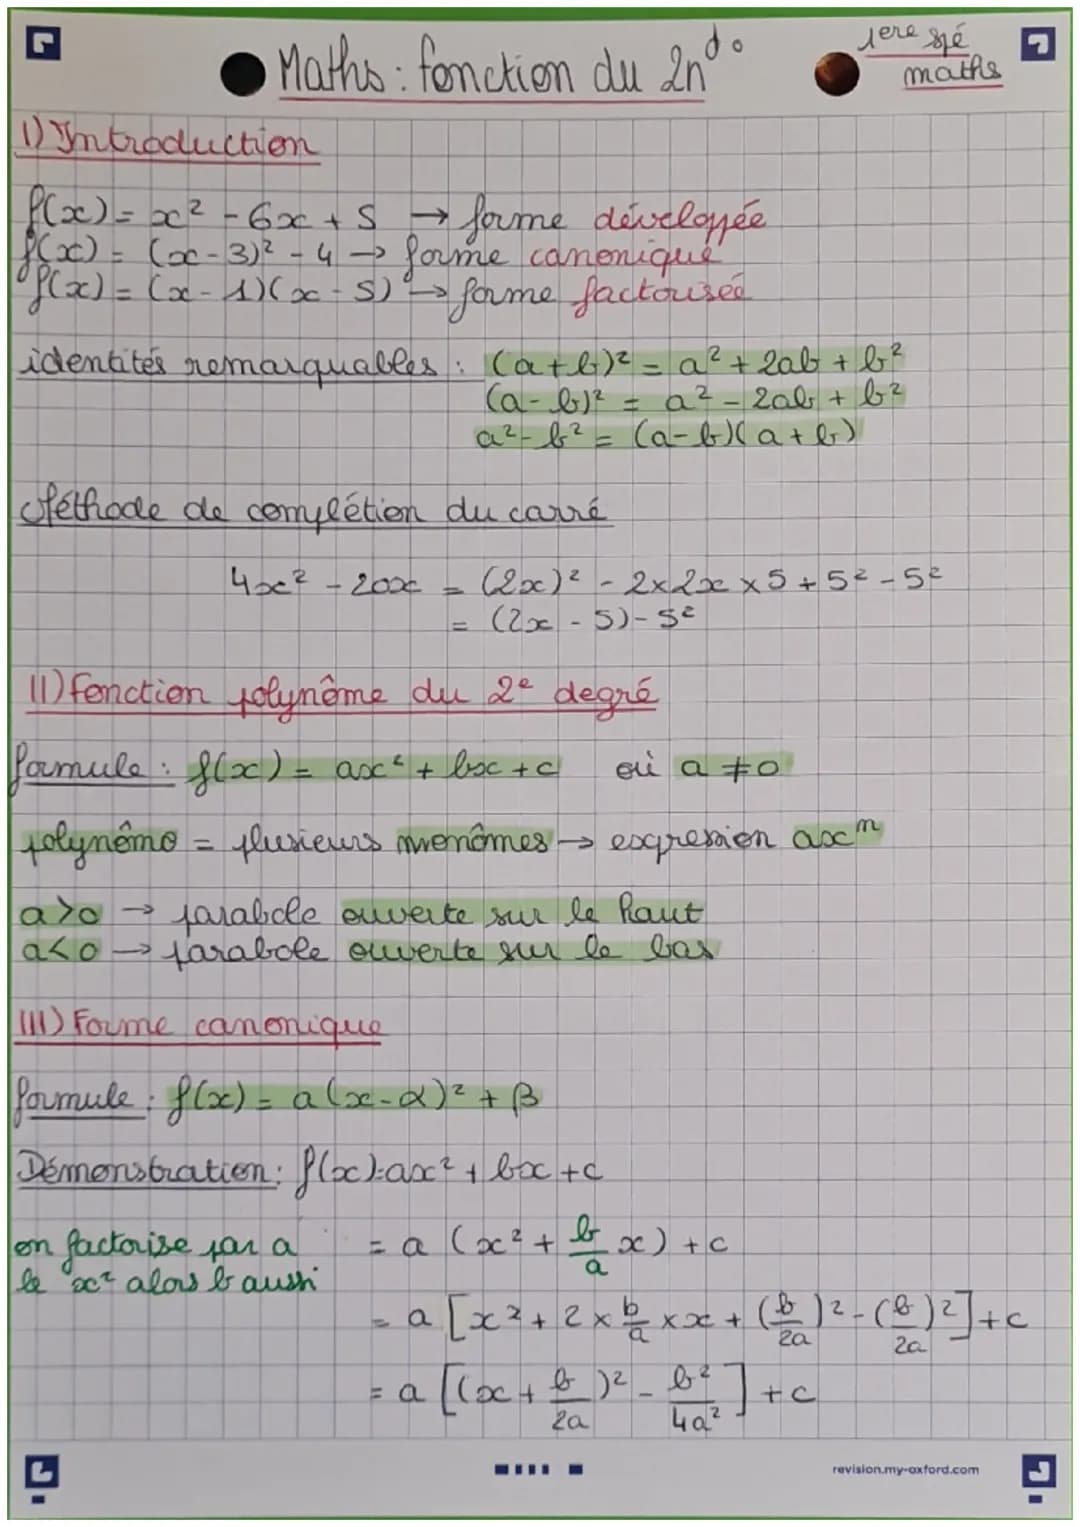 Maths : fonction du 2nd°
1ere spé
maths
I) Introduction
f(x) = x² - 6x + 5 → forme développée
f(x) = (x - 3)² - 4 → forme canonique
f(x) = (x - 1)(x - 5) → forme factorisée
identités remarquables : (a+b)² = a² + 2ab + b²
(a - b)² = a² - 2ab + b²
a² - b² = (a-b)(a+b)
Méthode de complétion du carré
4x² - 20x = (2x)² - 2×2x×5 + 5² - 5²
= (2x - 5) - 5²
II) Fonction polynôme du 2e degré
formule : f(x) = ax² + bx + c où a ≠ 0
polynôme = plusieurs monômes → expression axⁿ
a>0 → parabole ouverte sur le haut
a<0 → parabole ouverte sur le bas
III) Forme canonique
formule : f(x) = a(x-α)² + β
Démonstration : f(x) = ax² + bx + c
on factorise par a = a (x² + b/a x) + c
le x² alors b aussi
= a [x² + 2 × b/a × x + (b/2a)² - (b/2a)²] + c
= a [(x + b/2a)² - b²/4a²] + c
revision.my-oxford.com